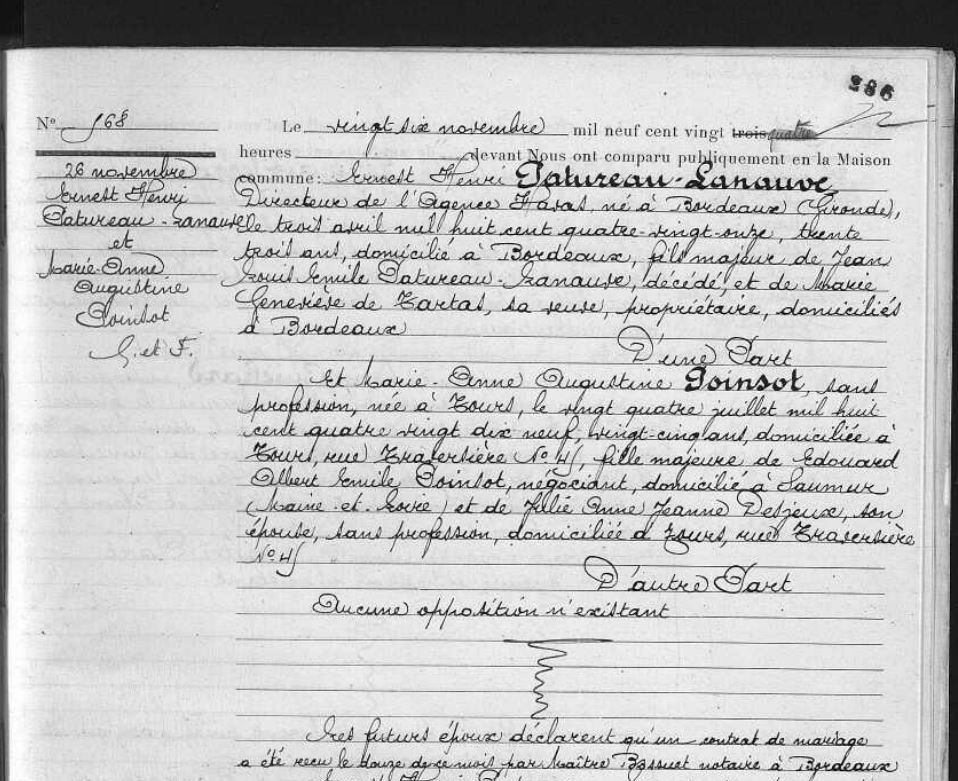 286
N° 568
Le vingt six novembre mil neuf cent vingt trois quatre
heures devant Nous ont comparu publiquement en la Maison
26 novembre
Ernest Henri
Patureau-Lanauve
et
Marie-Anne
Augustine
Poinsot
G. et F.
commune: Ernest Henri Patureau-Lanauve,
Directeur de l'Agence Havas, né à Bordeaux (Gironde),
le trois avril mil huit cent quatre-vingt-onze, trente
trois ans, domicilié à Bordeaux, fils majeur de Jean
Louis Emile Patureau-Lanauve, décédé, et de Marie
Geneviève de Tartas, sa veuve, propriétaire, domiciliés
à Bordeaux
D'une Part
Et Marie-Anne Augustine Poinsot, sans
profession, née à Tours, le vingt quatre juillet mil huit
cent quatre vingt dix neuf, vingt-cinq ans, domiciliée à
Tours, rue Traversière N° 45, fille majeure de Edouard
Albert Emile Poinsot, négociant, domicilié à Saumur
(Maine-et-Loire) et de Anne Jeanne Desjeux, son
épouse, sans profession, domiciliée à Tours, rue Traversière
N° 45
D'autre Part
Aucune opposition n'existant
Les futurs époux déclarent qu'un contrat de mariage
a été reçu le douze de ce mois par Maître Bossuet notaire à Bordeaux